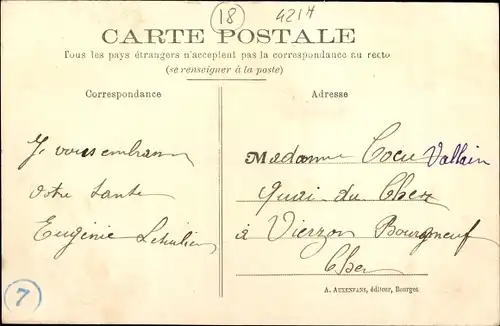 18 4217
CARTE POSTALE
Tous les pays étrangers n'acceptent pas la correspondance au recto
(se renseigner à la poste)
Correspondance
Adresse
Je vous embrasse
votre tante
Eugénie
Madame Coeu Vallain
Quai du Cher
à Vierzon Bourgneuf
Cher
7
A. AUXENFANS, éditeur, Bourges